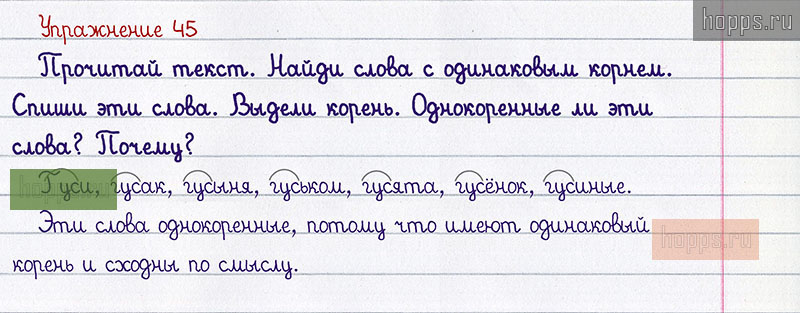 Упражнение 45
hopps.ru
Прочитай текст. Найди слова с одинаковым корнем.
Спиши эти слова. Выдели корень. Однокоренные ли эти
слова? Почему?
Гуси, гусак, гусыня, гуськом, гусята, гусёнок, гусиные.
hopps.ru
Эти слова однокоренные, потому что имеют одинаковый
hopps.ru
корень и сходны по смыслу.